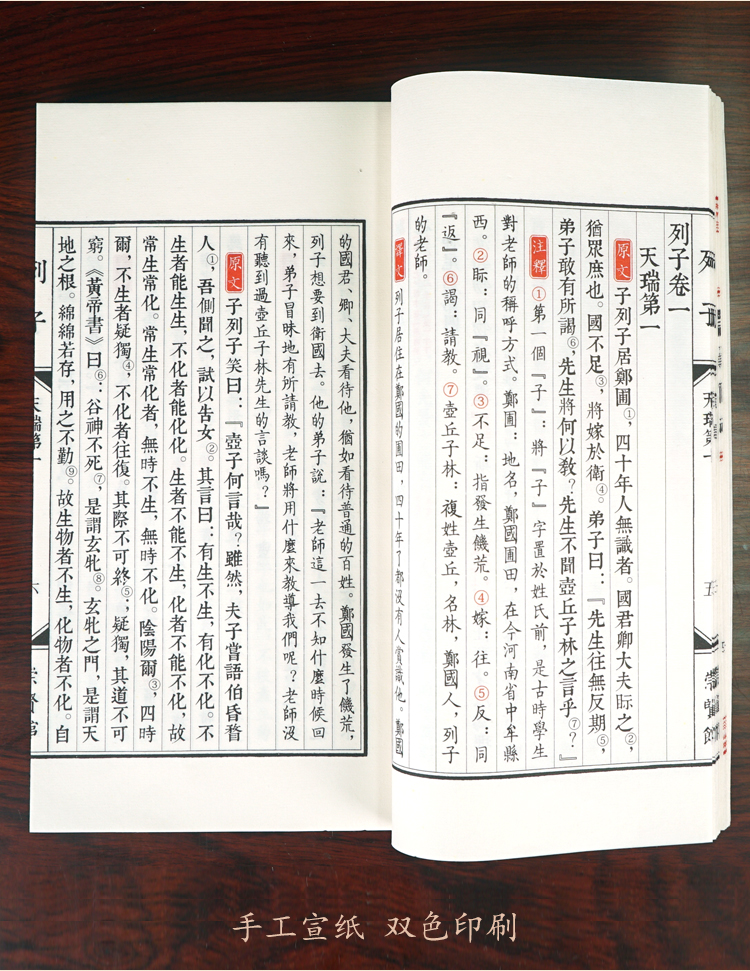 列子卷一
天瑞第一
原文 子列子居鄭圃①，四十年人無識者。國君卿大夫眎之②，
猶眾庶也。國不足③，將嫁於衛④。弟子曰：『先生往無反期⑤，
弟子敢有所謁⑥，先生將何以教？先生不聞壺丘子林之言乎⑦？』
注釋 ①第一個『子』：將『子』字置於姓氏前，是古時學生
對老師的稱呼方式。鄭圃：地名，鄭國圃田，在今河南省中牟縣
西。②眎：同『視』。③不足：指發生饑荒。④嫁：往。⑤反：同
『返』。⑥謁：請教。⑦壺丘子林：複姓壺丘，名林，鄭國人，列子
的老師。
譯文 列子居住在鄭國的圃田，四十年了都沒有人賞識他。鄭國
天瑞第一
五
崇賢館
的國君、卿、大夫看待他，猶如看待普通的百姓。鄭國發生了饑荒，
列子想要到衛國去。他的弟子說：『老師這一去不知什麼時候回
來，弟子冒昧地有所請教，老師將用什麼來教導我們呢？老師沒
有聽到過壺丘子林先生的言談嗎？』
原文 子列子笑曰：『壺子何言哉？雖然，夫子嘗語伯昏瞀
人①，吾側聞之，試以告女②。其言曰：有生不生，有化不化。不
生者能生生，不化者能化化。生者不能不生，化者不能不化，故
常生常化。常生常化者，無時不生，無時不化。陰陽爾③，四時
爾，不生者疑獨④，不化者往復。其際不可終⑤；疑獨，其道不可
窮。《黃帝書》曰⑥：谷神不死⑦，是謂玄牝⑧。玄牝之門，是謂天
地之根。綿綿若存，用之不勤⑨。故生物者不生，化物者不化。自
列子
天瑞第一
六
崇賢館
手工宣纸 双色印刷